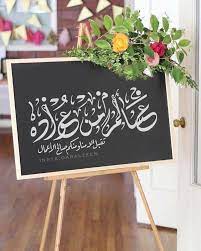 عساكم من عواده
تقبل الله منا ومنكم صالح الأعمال